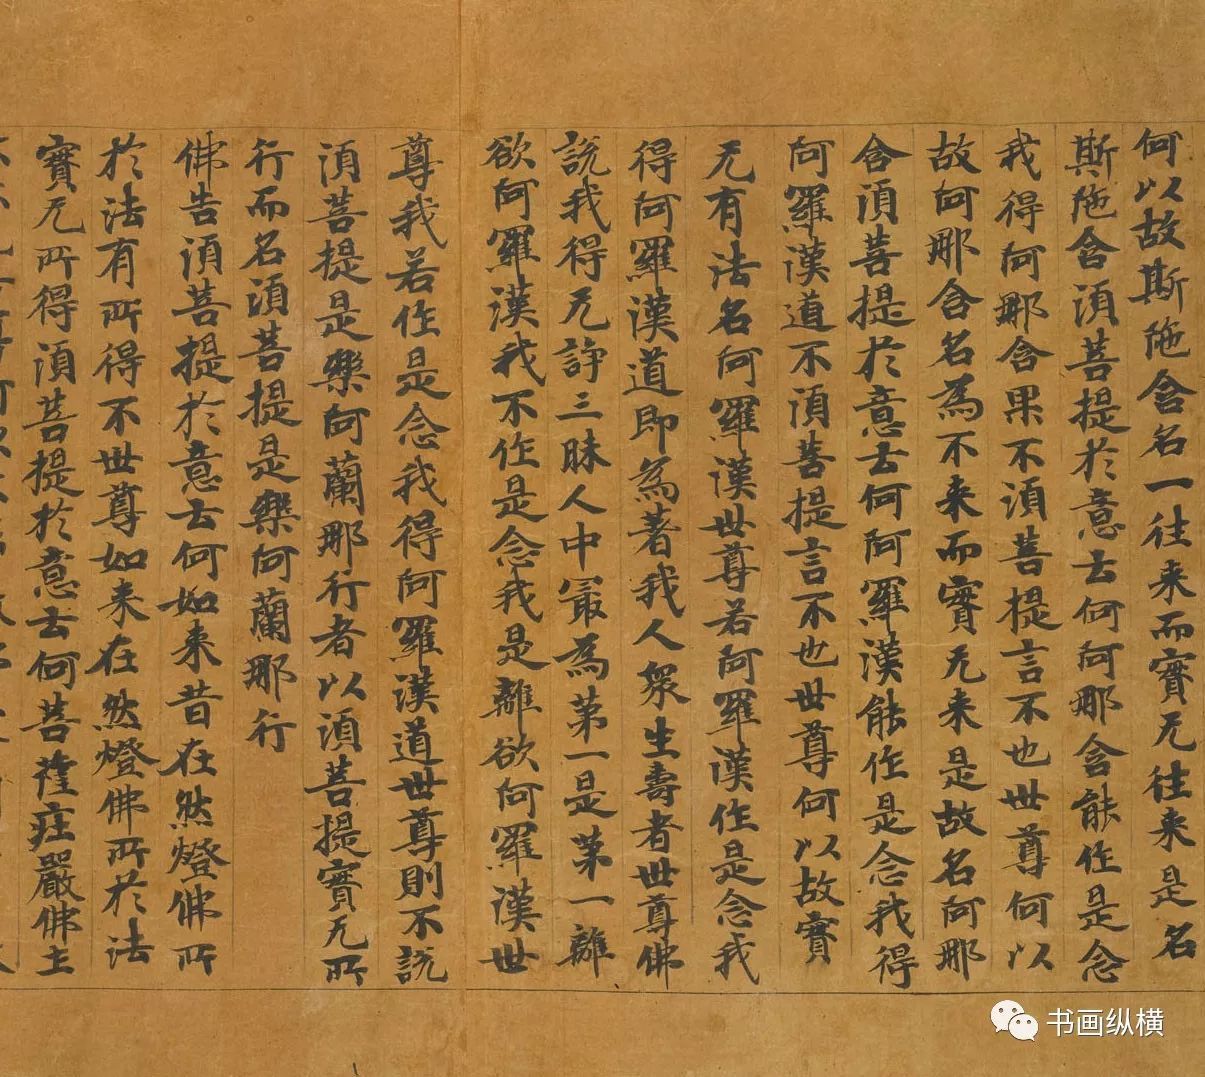 何以故斯陁含名一往来而實无往来是名
斯陁含須菩提於意云何阿那含能作是念
我得阿那含果不須菩提言不也世尊何以
故阿那含名為不来而實无来是故名阿那
含須菩提於意云何阿羅漢能作是念我得
阿羅漢道不須菩提言不也世尊何以故實
无有法名阿羅漢世尊若阿羅漢作是念我
得阿羅漢道即為著我人衆生壽者世尊佛
說我得无諍三昧人中冣為第一是第一離
欲阿羅漢我不作是念我是離欲阿羅漢世
尊我若作是念我得阿羅漢道世尊則不說
須菩提是樂阿蘭那行者以須菩提實无所
行而名須菩提是樂阿蘭那行
佛告須菩提於意云何如来昔在然燈佛所
於法有所得不世尊如来在然燈佛所於法
實无所得須菩提於意云何菩薩莊嚴佛土
书画纵横